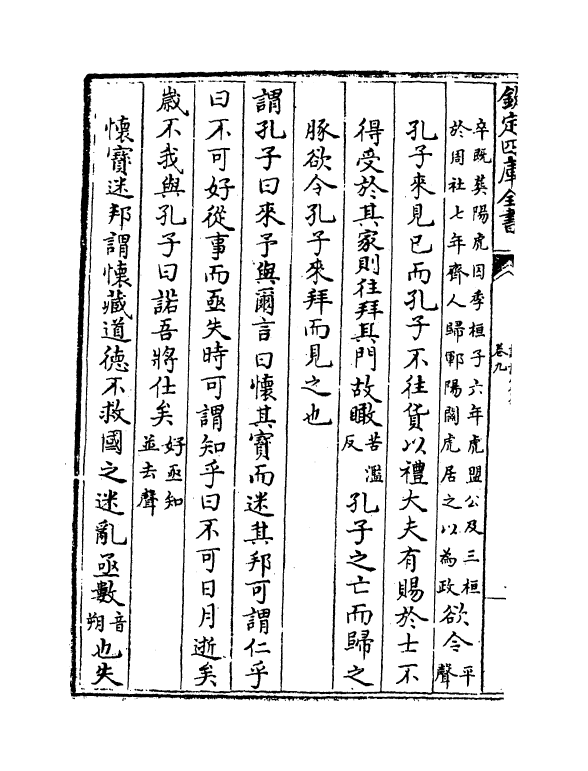 欽定四庫全書
卷九
卒既葬陽虎因季桓子六年虎盟公及三桓
於周社七年齊人歸鄆陽關虎居之以為政欲令平聲
孔子來見已而孔子不往貨以禮大夫有賜於士不
得受於其家則往拜其門故瞰苦濫反孔子之亡而歸之
豚欲令孔子來拜而見之也
謂孔子曰來予與爾言曰懷其寳而迷其邦可謂仁乎
曰不可好從事而亟失時可謂知乎曰不可日月逝矣
嵗不我與孔子曰諾吾將仕矣好亟知並去聲
懷寳迷邦謂懷藏道德不救國之迷亂亟數音朔也失